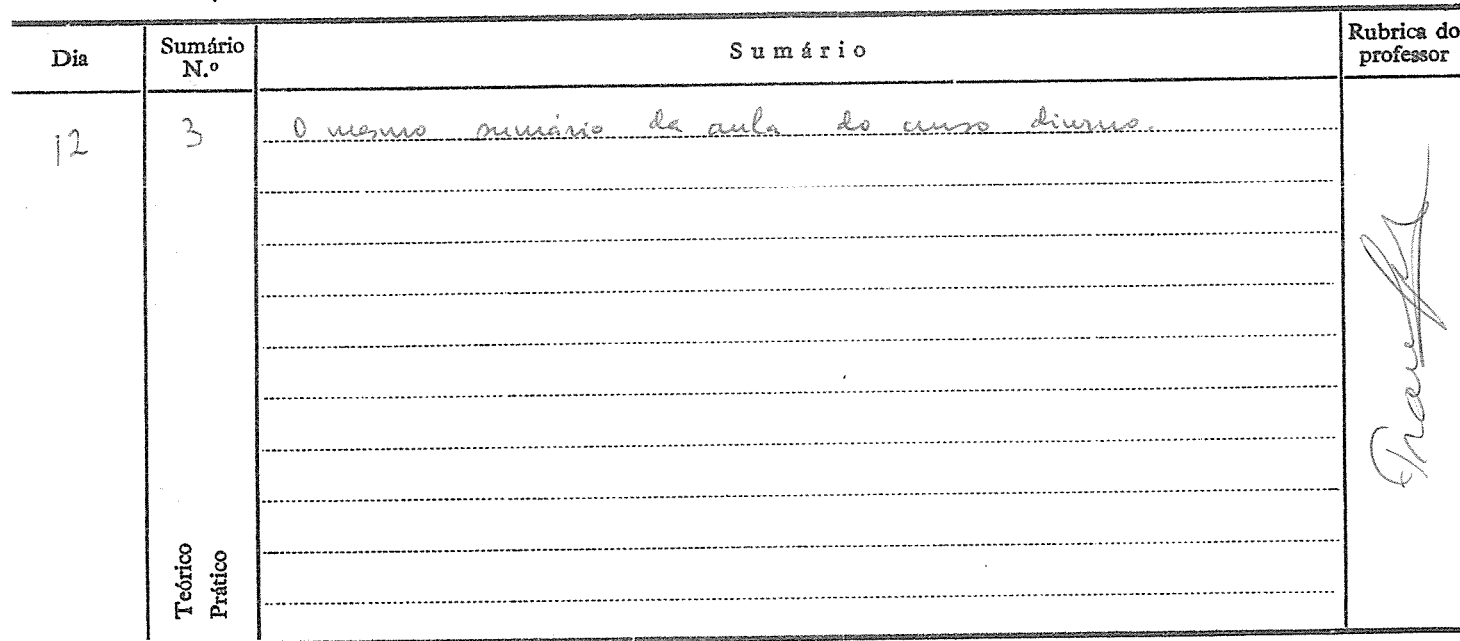 Dia
Sumário
N.º
Sumário
Rubrica do
professor
12
3
O mesmo sumário da aula do curso diurno.
Teórico
Prático